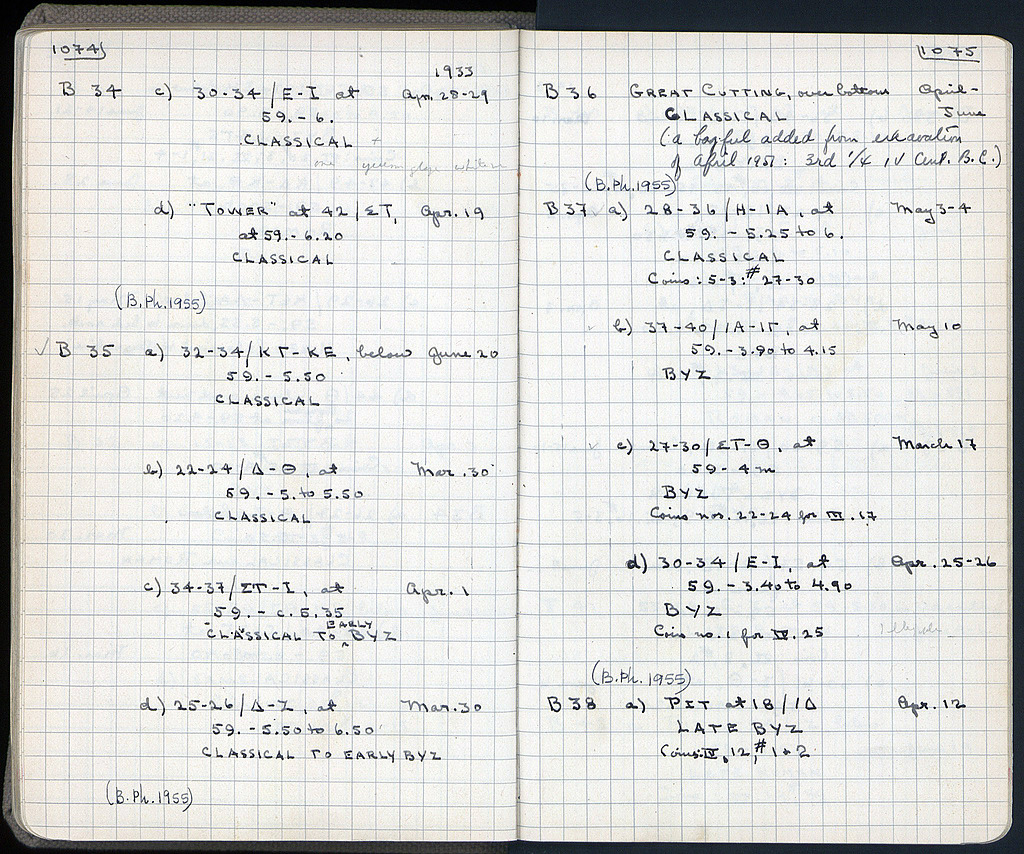 1074
1933
B 34 c) 30-34/E-I at Apr. 28-29
59. - 6.
CLASSICAL +
one
d) "TOWER" at 42/ΣT, Apr. 19
at 59. - 6.20
CLASSICAL
(B.Ph. 1955)
✓ B 35 a) 32-34/KΓ-KE, below June 20
59. - 5.50
CLASSICAL
b) 22-24/Δ-Θ, at Mar. 30
59. - 5. to 5.50
CLASSICAL
c) 34-37/ΣT-I, at Apr. 1
59. - c. 5.35
EARLY
CLASSICAL TO ^ BYZ
d) 25-26/Δ-Z, at Mar. 30
59. - 5.50 to 6.50
CLASSICAL TO EARLY BYZ
(B.Ph. 1955)
1075
B 36 GREAT CUTTING, over bottom April -
CLASSICAL June
(a bagful added from excavation
of April 1951: 3rd 1/4 IV Cent. B.C.)
(B.Ph. 1955)
B 37 ✓ a) 28-36/H-IA, at May 3-4
59. - 5.25 to 6.
CLASSICAL
Coins: 5-3: # 27-30
✓ b) 37-40/IA-IΓ, at May 10
59. - 3.90 to 4.15
BYZ
✓ c) 27-30/ΣT-Θ, at March 17
59 - 4 m
BYZ
Coins nos. 22-24 for III. 17
d) 30-34/E-I, at Apr. 25-26
59. - 3.40 to 4.90
BYZ
Coin no. 1 for IV. 25 Illegible
(B.Ph. 1955)
B 38 a) PIT at 18/IΔ Apr. 12
LATE BYZ
Coins: IV, 12, # 1 & 2